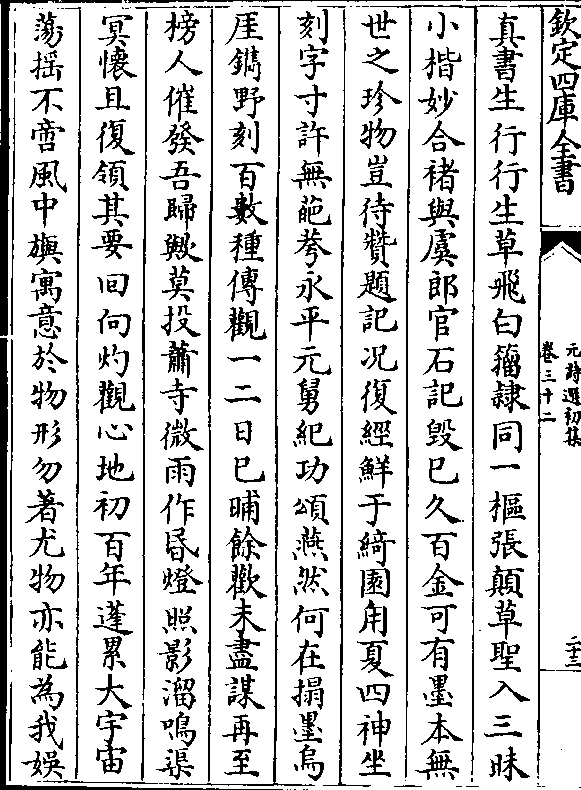 欽定四庫全書
元詩選初集
卷三十二
二十三
真書生行行生草飛白籀隷同一樞張顛草聖入三昧
小楷妙合褚與虞郎官石記毀已久百金可有墨本無
世之珍物豈待贊題記况復經鮮于綺園甪夏四神坐
刻字寸許無葩萼永平元舅紀功頌燕然何在搨墨烏
厓鐫野刻百數種傳觀一二日已晡餘歡未盡謀再至
榜人催發吾歸歟莫投蕭寺微雨作昏燈照影溜鳴渠
冥懷且復領其要回向灼觀心地初百年蓬累大宇宙
蕩揺不啻風中旟寓意於物形勿著尤物亦能為我娯